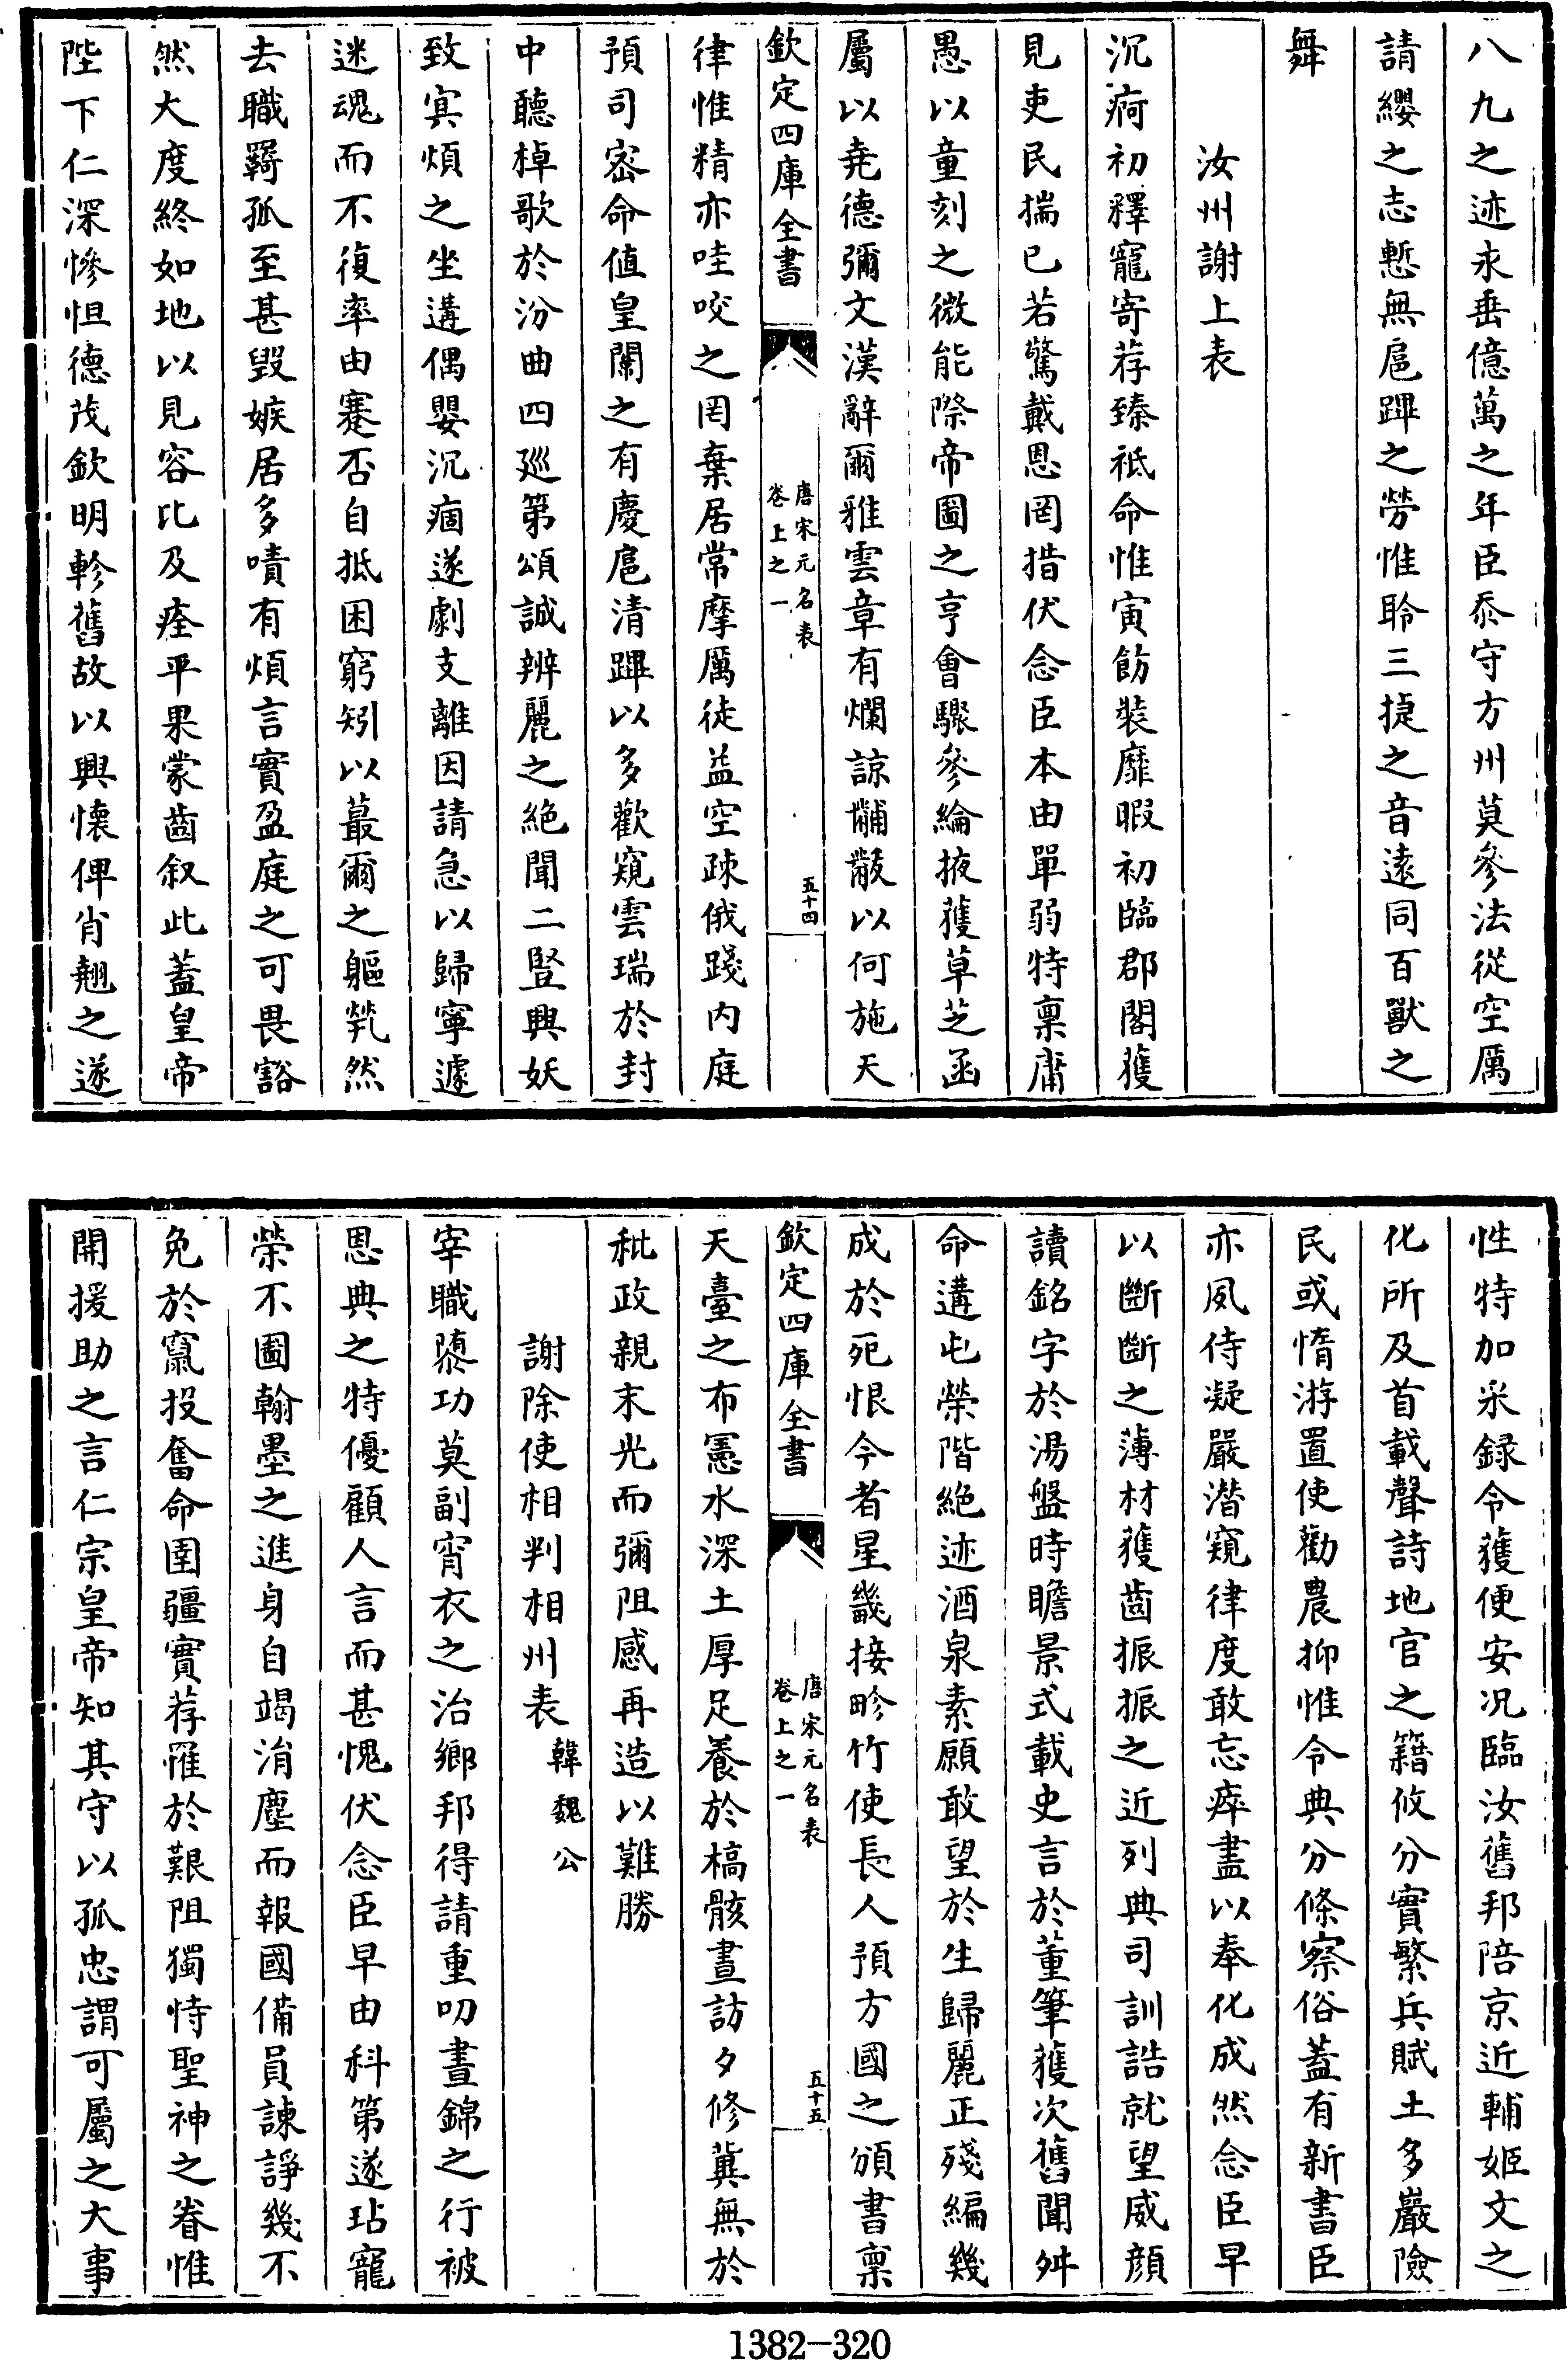 八九之迹永垂億萬之年臣忝守方州莫參法從空厲
請纓之志慙無扈蹕之勞惟聆三捷之音遠同百獸之
舞
汝州謝上表
沉痾初釋寵寄荐臻祗命惟寅飭裝靡暇初臨郡閣獲
見吏民揣已若驚戴恩罔措伏念臣本由單弱特禀庸
愚以童刻之微能際帝圖之亨會驟參綸掖獲草芝函
屬以堯德彌文漢辭爾雅雲章有爛諒黼黻以何施天
欽定四庫全書
唐宋元名表
卷上之一
五十四
律惟精亦哇咬之罔棄居常摩厲徒益空疎俄踐内庭
預司宻命值皇闈之有慶扈清蹕以多歡窺雲瑞於封
中聽棹歌於汾曲四廵第頌誠辨麗之絶聞二豎興妖
致㝠煩之坐遘偶嬰沉痼遂劇支離因請急以歸寧遽
迷魂而不復率由蹇否自抵困窮矧以蕞爾之軀煢然
去職羇孤至甚毁嫉居多嘖有煩言實盈庭之可畏豁
然大度終如地以見容比及痊平果蒙齒叙此蓋皇帝
陛下仁深慘怛德茂欽明軫舊故以興懷俾肖翹之遂
性特加采録令獲便安况臨汝舊邦陪京近輔姬文之
化所及首載聲詩地官之籍攸分實繁兵賦土多巖險
民或惰游置使勸農抑惟令典分條察俗蓋有新書臣
亦夙侍凝嚴潛窺律度敢忘瘁盡以奉化成然念臣早
以斷斷之薄材獲齒振振之近列典司訓誥就望威顔
讀銘字於湯盤時瞻景式載史言於董筆獲次舊聞舛
命遘屯榮階絶迹酒泉素願敢望於生歸麗正殘編幾
成於死恨今者星畿接畛竹使長人預方國之頒書禀
欽定四庫全書
唐宋元名表
卷上之一
五十五
天臺之布憲水深土厚足養於槁骸晝訪夕修冀無於
秕政親末光而彌阻感再造以難勝
謝除使相判相州表韓魏公
宰職隳功莫副宵衣之治鄉邦得請重叨晝錦之行被
恩典之特優顧人言而甚愧伏念臣早由科第遂玷寵
榮不圖翰墨之進身自竭涓塵而報國備員諫諍幾不
免於竄投奮命圉疆實荐罹於艱阻獨恃聖神之眷惟
開援助之言仁宗皇帝知其守以孤忠謂可屬之大事
1382-320